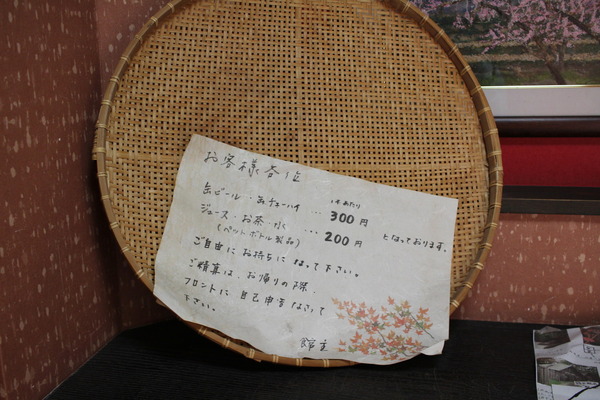 お客様各位
1本あたり
缶ビール・缶チューハイ … 300円
ジュース・お茶・水 … 200円 となっております。
(ペットボトル製品)
ご自由にお持ちになって下さい。
ご精算は、お帰りの際、
フロントに自己申告なさって
下さい。
館主